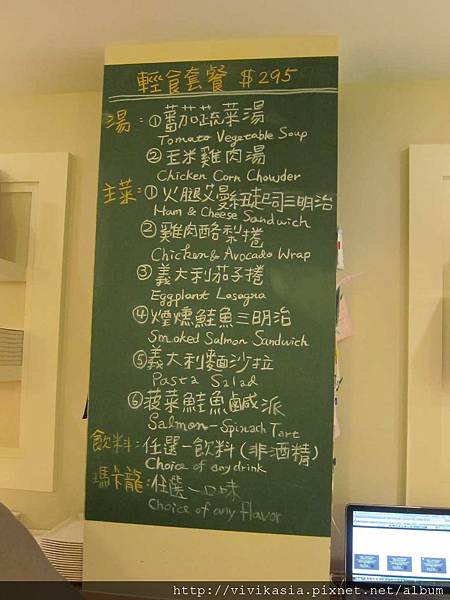 輕食套餐 $295
湯：①蕃茄蔬菜湯
Tomato Vegetable Soup
②玉米雞肉湯
Chicken Corn Chowder
主菜：①火腿艾曼紐起司三明治
Ham & Cheese Sandwich
②雞肉酪梨捲
Chicken & Avocado Wrap
③義大利茄子捲
Eggplant Lasagna
④煙燻鮭魚三明治
Smoked Salmon Sandwich
⑤義大利麵沙拉
Pasta Salad
⑥菠菜鮭魚鹹派
Salmon-Spinach Tart
飲料：任選一飲料(非酒精)
Choice of any drink
瑪卡龍：任選一口味
Choice of any flavor
http://vivikasia.pixnet.net/album